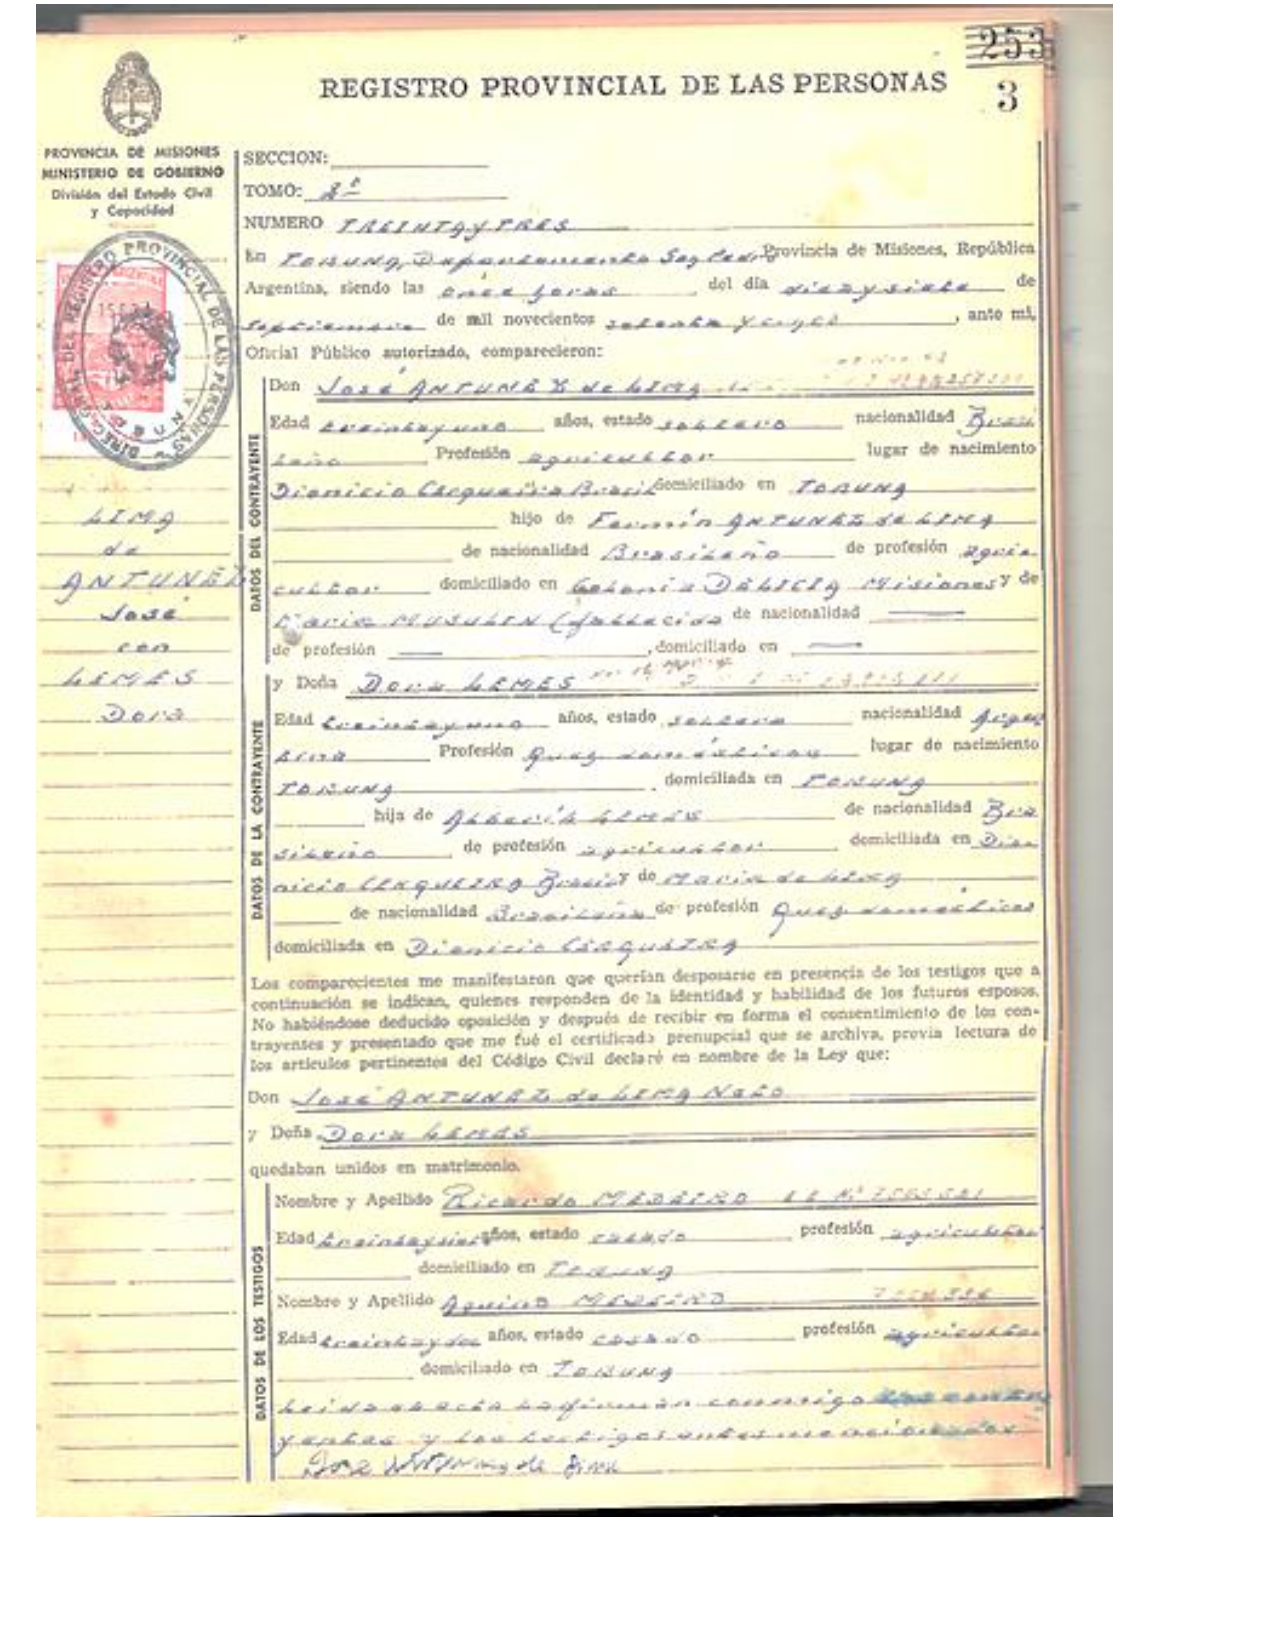 253
3
REGISTRO PROVINCIAL DE LAS PERSONAS
PROVINCIA DE MISIONES
MINISTERIO DE GOBIERNO
División del Estado Civil
y Capacidad
DIREC. GRAL. DEL REGISTRO PROVINCIAL DE LAS PERSONAS
LIMA
de
ANTUNEZ
José
con
LEMES
Dora
SECCION:
TOMO: 2º
NUMERO TREINTA y TRES
En TORUNA, Departamento San Pedro Provincia de Misiones, República
Argentina, siendo las once horas del día diez y siete de
septiembre de mil novecientos setenta y cinco, ante mí,
Oficial Público autorizado, comparecieron:
DATOS DEL CONTRAYENTE
Don José ANTUNEZ de LIMA
Edad treinta y uno años, estado soltero nacionalidad Brasi
leño Profesión agricultor lugar de nacimiento
Dionicio Cerqueira Brasil domiciliado en TORUNA
hijo de Fermín ANTUNEZ de LIMA
de nacionalidad Brasileño de profesión agri
cultor domiciliado en Colonia DELICIA Misiones y de
María MUSULEN (fallecida de nacionalidad
de profesión , domiciliado en
DATOS DE LA CONTRAYENTE
y Doña Dora LEMES
Edad treinta y uno años, estado soltera nacionalidad Argen
tina Profesión Queq domésticos lugar de nacimiento
TORUNA domiciliada en TORUNA
hija de LEMES de nacionalidad Bra
sileño de profesión agricultor domiciliada en Dio
nicio CERQUEIRA Brasil y de María de LIMA
de nacionalidad Brasileña de profesión Queq domésticos
domiciliada en Dionicio CERQUEIRA
Los comparecientes me manifestaron que querían desposarse en presencia de los testigos que a
continuación se indican, quienes responden de la identidad y habilidad de los futuros esposos.
No habiéndose deducido oposición y después de recibir en forma el consentimiento de los con-
trayentes y presentado que me fué el certificado prenupcial que se archiva, previa lectura de
los artículos pertinentes del Código Civil declaré en nombre de la Ley que:
Don José ANTUNEZ de LIMA
y Doña Dora LEMES
quedaban unidos en matrimonio.
DATOS DE LOS TESTIGOS
Nombre y Apellido Ricardo MEDEIRO
Edad años, estado casado profesión agricultor
domiciliado en TORUNA
Nombre y Apellido Aquino MEDEIRO
Edad treinta y dos años, estado casado profesión agricultor
domiciliado en TORUNA
Leída el acta la firman conmigo los contra
yentes y los testigos antes mencionados